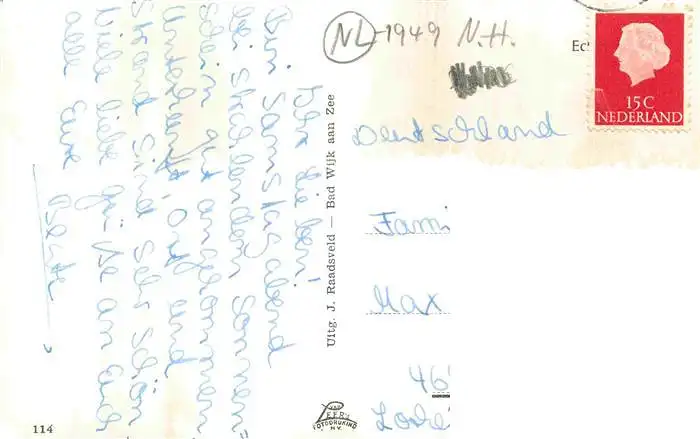 Ihr Lieben!
Bin Samstag abend
bei strahlendem Sonnen=
schein gut angekommen
Unterkunft, Ort und
Strand sind sehr schön
Viele liebe Grüße an Euch
alle Eure
NL-1949 N.H.
Ec
15 C
NEDERLAND
Deutschland
Fami
Max
46
Uitg. J. Raadsveld — Bad Wijk aan Zee
VAN LEER'S
FOTODRUKIND
N.V.
114